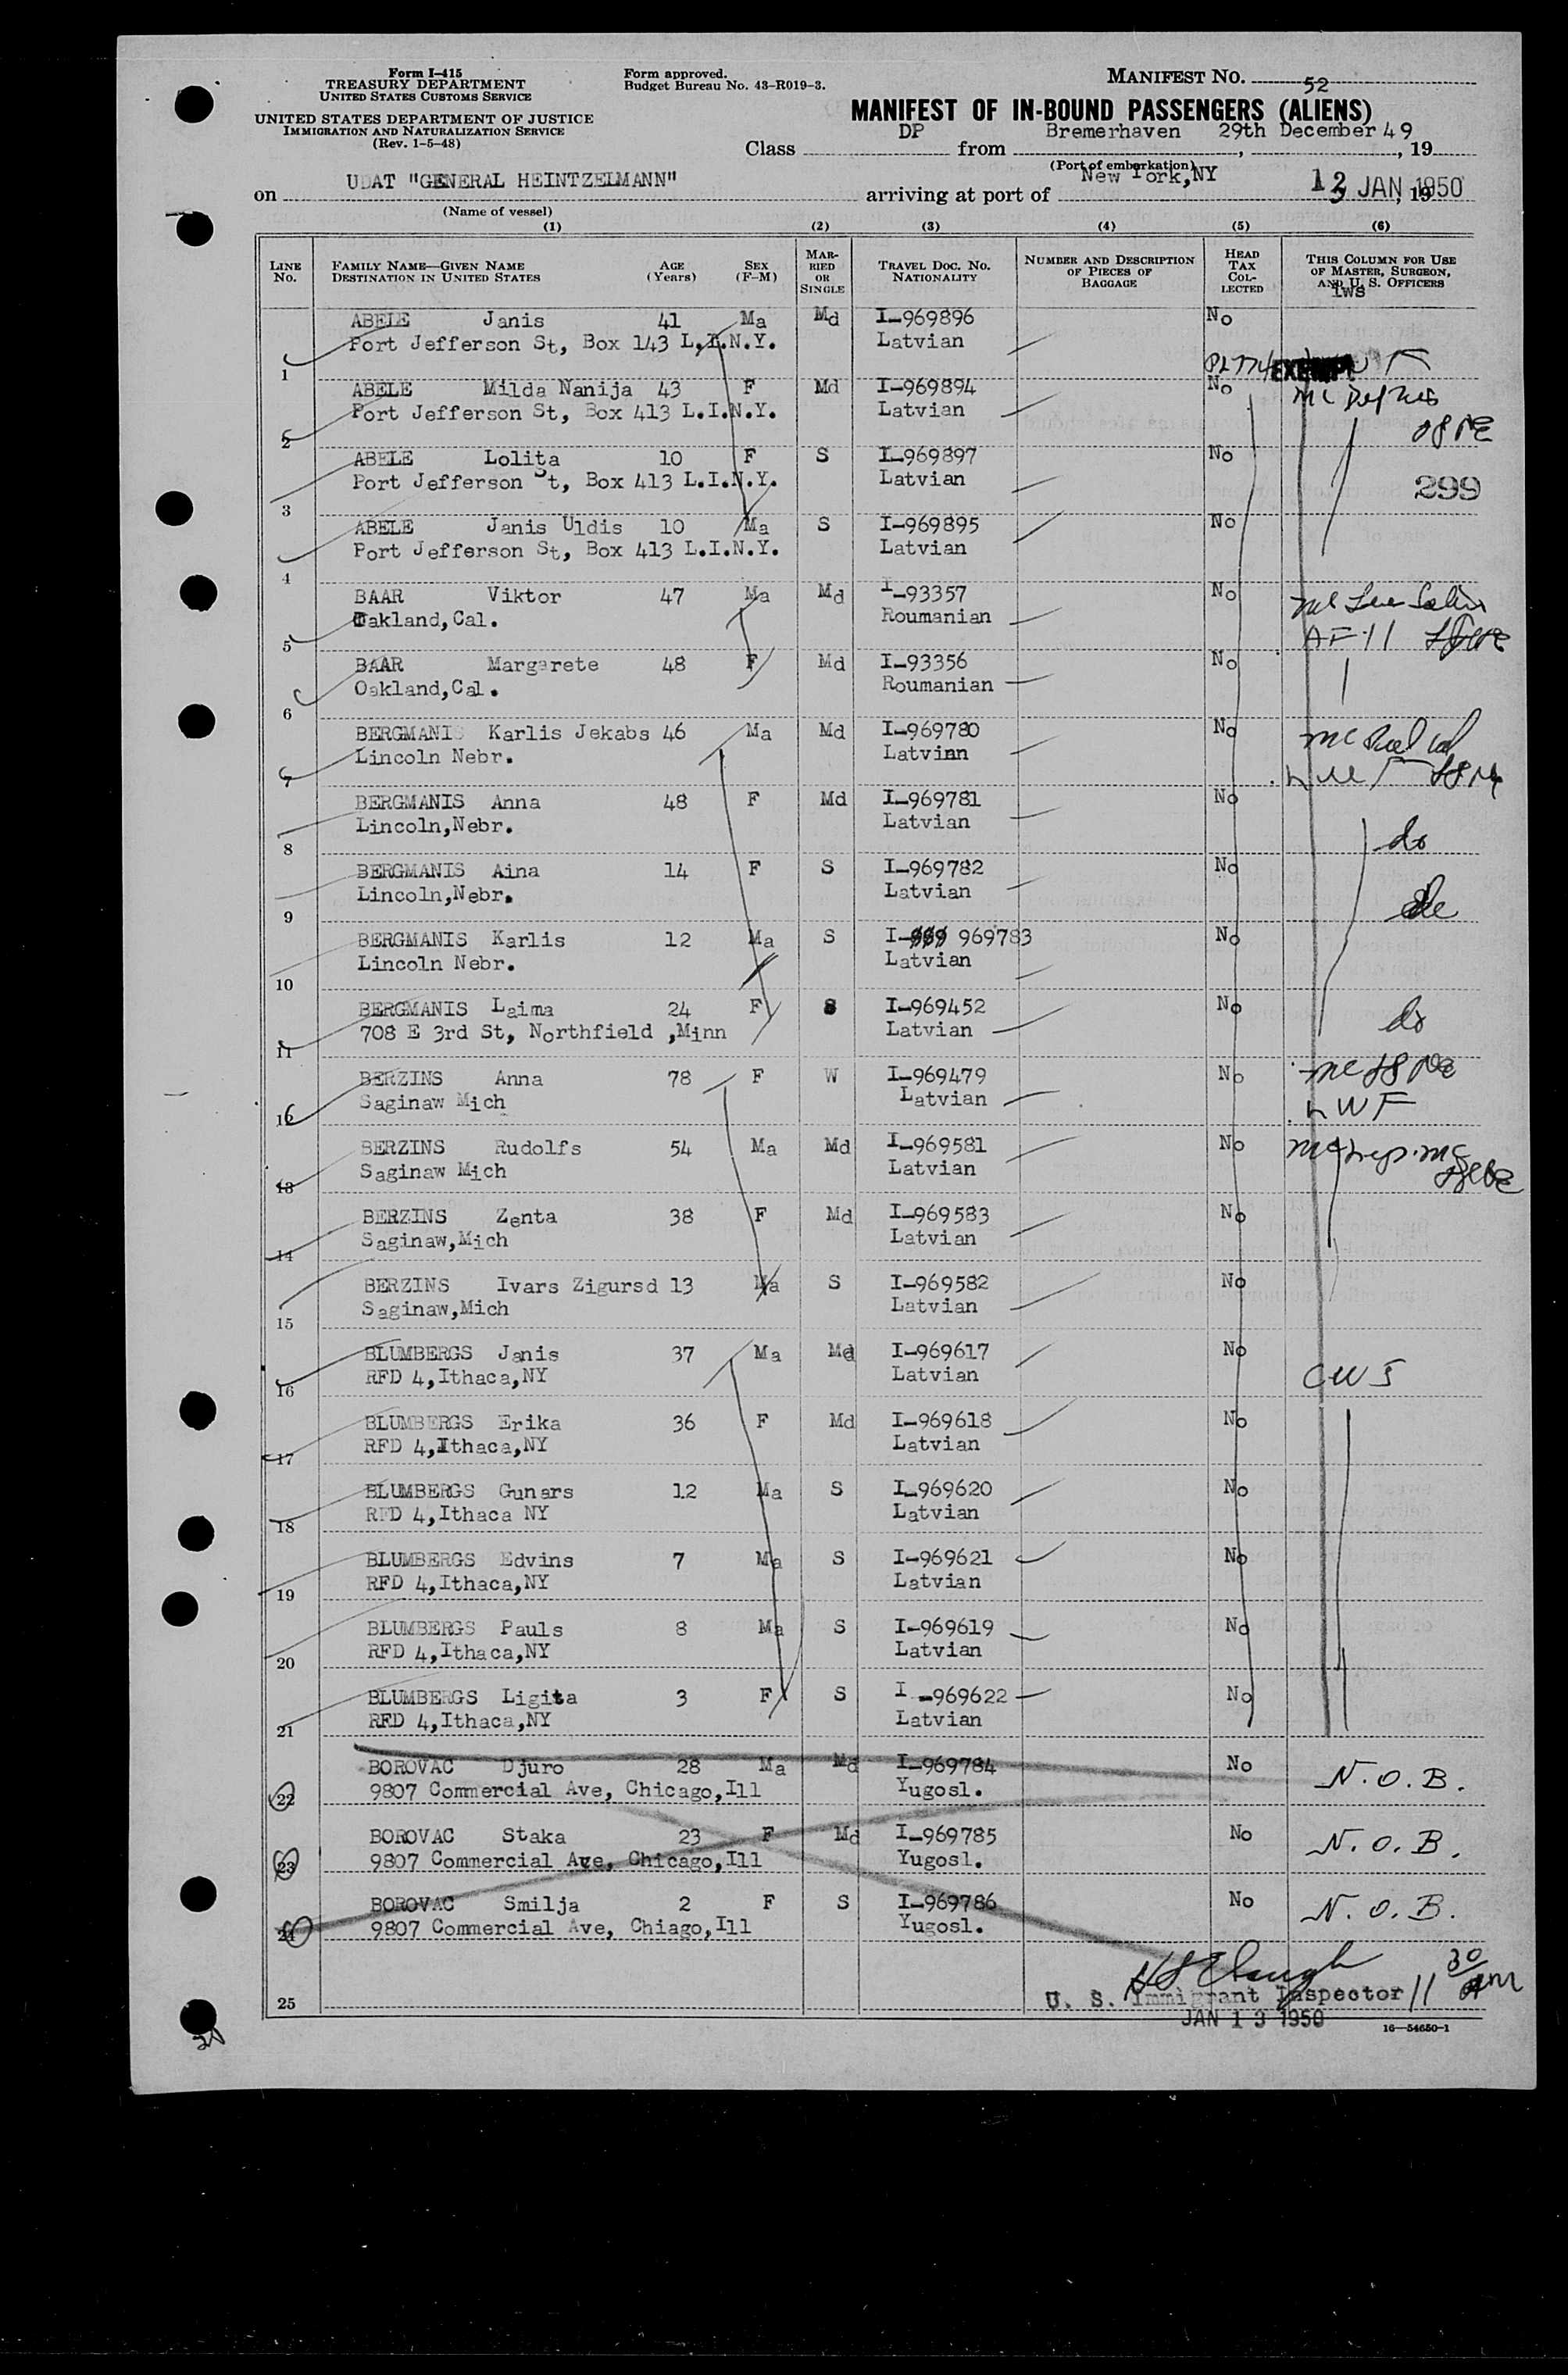 Form I-415
TREASURY DEPARTMENT
UNITED STATES CUSTOMS SERVICE
UNITED STATES DEPARTMENT OF JUSTICE
IMMIGRATION AND NATURALIZATION SERVICE
(Rev. 1-5-48)
Form approved.
Budget Bureau No. 43-R019-3.
MANIFEST NO. 52
MANIFEST OF IN-BOUND PASSENGERS (ALIENS)
Class DP from Bremerhaven, 29th December, 1949
(Port of embarkation)
on USAT "GENERAL HEINTZELMANN" arriving at port of New York,NY 13 JAN 1950, 19
(Name of vessel)
(1) (2) (3) (4) (5) (6)
LINE No. FAMILY NAME—GIVEN NAME DESTINATION IN UNITED STATES AGE (Years) SEX (F-M) MARRIED OR SINGLE TRAVEL DOC. NO. NATIONALITY NUMBER AND DESCRIPTION OF PIECES OF BAGGAGE HEAD TAX COLLECTED THIS COLUMN FOR USE OF MASTER, SURGEON, AND U. S. OFFICERS
1 ABELE Janis 41 Ma Md I-969896 No
Port Jefferson St, Box 143 L.I.N.Y. Latvian
PL 774 EXEMPT
2 ABELE Milda Nanija 43 F Md I-969894 No
Port Jefferson St, Box 413 L.I.N.Y. Latvian
3 ABELE Lolita 10 F S I-969897 No
Port Jefferson St, Box 413 L.I.N.Y. Latvian 299
4 ABELE Janis Uldis 10 Ma S I-969895 No
Port Jefferson St, Box 413 L.I.N.Y. Latvian
5 BAAR Viktor 47 Ma Md I-93357 No
Oakland,Cal. Roumanian
6 BAAR Margarete 48 F Md I-93356 No
Oakland,Cal. Roumanian
7 BERGMANIS Karlis Jekabs 46 Ma Md I-969780 No
Lincoln Nebr. Latvian
8 BERGMANIS Anna 48 F Md I-969781 No
Lincoln,Nebr. Latvian do
9 BERGMANIS Aina 14 F S I-969782 No
Lincoln,Nebr. Latvian
10 BERGMANIS Karlis 12 Ma S I-989 969783 No
Lincoln Nebr. Latvian
11 BERGMANIS Laima 24 F S I-969452 No
708 E 3rd St, Northfield ,Minn Latvian do
12 BERZINS Anna 78 F W I-969479 No
Saginaw Mich Latvian LWF
13 BERZINS Rudolfs 54 Ma Md I-969581 No
Saginaw Mich Latvian
14 BERZINS Zenta 38 F Md I-969583 No
Saginaw,Mich Latvian
15 BERZINS Ivars Zigursd 13 Ma S I-969582 No
Saginaw,Mich Latvian
16 BLUMBERGS Janis 37 Ma Md I-969617 No
RFD 4,Ithaca,NY Latvian CWS
17 BLUMBERGS Erika 36 F Md I-969618 No
RFD 4,Ithaca,NY Latvian
18 BLUMBERGS Gunars 12 Ma S I-969620 No
RFD 4,Ithaca NY Latvian
19 BLUMBERGS Edvins 7 Ma S I-969621 No
RFD 4,Ithaca,NY Latvian
20 BLUMBERGS Pauls 8 Ma S I-969619 No
RFD 4,Ithaca,NY Latvian
21 BLUMBERGS Ligita 3 F S I-969622 No
RFD 4,Ithaca,NY Latvian
22 BOROVAC Djuro 28 Ma Md I-969784 No N.O.B.
9807 Commercial Ave, Chicago,Ill Yugosl.
23 BOROVAC Staka 23 F Md I-969785 No N.O.B.
9807 Commercial Ave, Chicago,Ill Yugosl.
24 BOROVAC Smilja 2 F S I-969786 No N.O.B.
9807 Commercial Ave, Chiago,Ill Yugosl.
25
U. S. Immigrant Inspector 11 30 AM
JAN 13 1950
16—54650-1